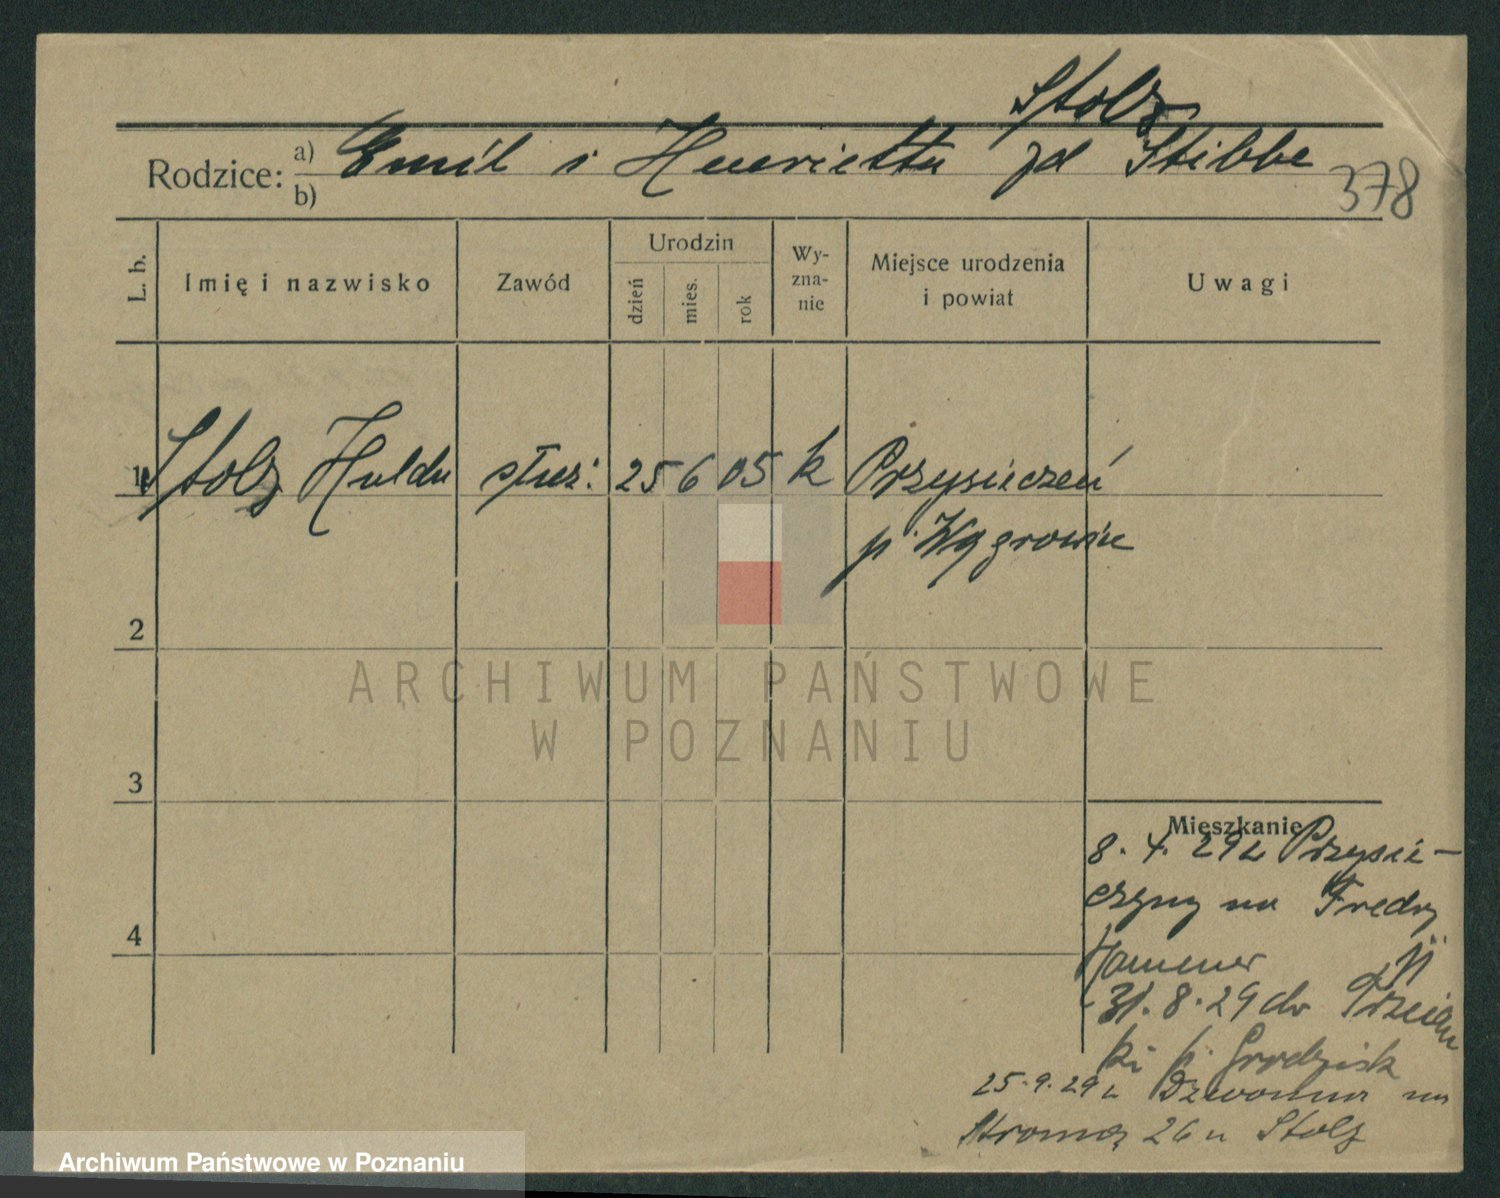 Stolz
Rodzice: a) Emil i Henrietta zd Stibbe
b)
378
L. b.
Imię i nazwisko
Zawód
Urodzin
dzień
mies.
rok
Wy-
zna-
nie
Miejsce urodzenia
i powiat
Uwagi
1 Stolz Hulda służ: 25 6 05 k Przysieczeń
p. Wągrowiec
2
ARCHIWUM PAŃSTWOWE
W POZNANIU
3
Mieszkanie
8. 4. 29 z Przysie-
czyny na Fredry
4
31. 8. 29 do
ki p. Grodzisk
25. 9. 29 z Dzwonowa na
Stromą 26 u Stolz
Archiwum Państwowe w Poznaniu